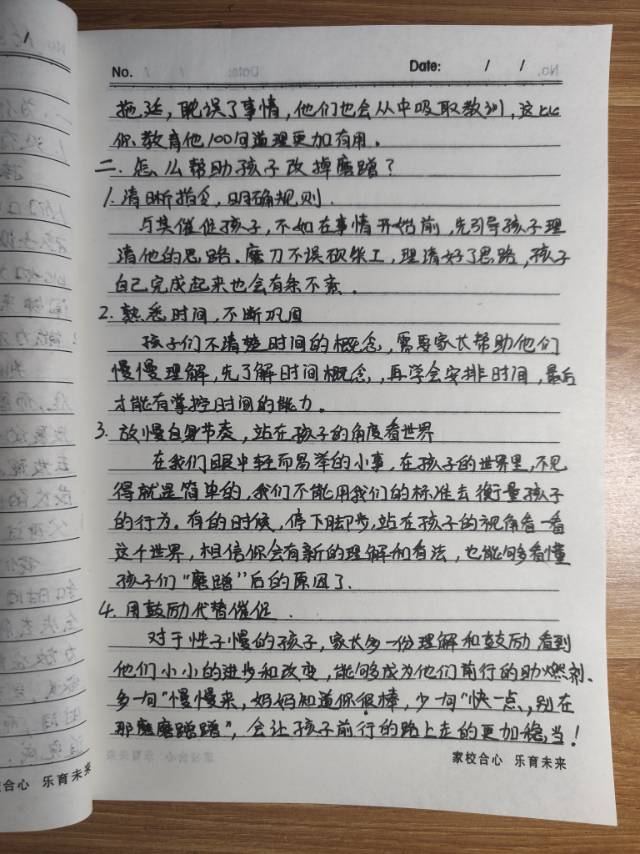 No.
Date: / /
拖延，耽误了事情，他们也会从中吸取教训，这比
你教育他100句道理更加有用。
二、怎么帮助孩子改掉磨蹭？
1.清晰指令，明确规则.
与其催促孩子，不如在事情开始前，先引导孩子理
清他的思路。磨刀不误砍柴工，理清好了思路，孩子
自己完成起来也会有条不紊。
2.熟悉时间，不断巩固
孩子们不清楚时间的概念，需要家长帮助他们
慢慢理解，先了解时间概念，再学会安排时间，最后
才能有掌控时间的能力。
3.放慢自身节奏，站在孩子的角度看世界
在我们眼中轻而易举的小事，在孩子的世界里，不见
得就是简单的，我们不能用我们的标准去衡量孩子
的行为。有的时候，停下脚步，站在孩子的视角看一看
这个世界，相信你会有新的理解和看法，也能够看懂
孩子们“磨蹭”后的原因了.
4.用鼓励代替催促.
对于性子慢的孩子，家长多一份理解和鼓励看到
他们小小的进步和改变，能够成为他们前行的助燃剂、
多一句“慢慢来，妈妈知道你很棒，少一句“快一点，别在
那磨磨蹭蹭”，会让孩子前行的路上走的更加稳当！
家校合心 乐育未来
合心 乐育未来